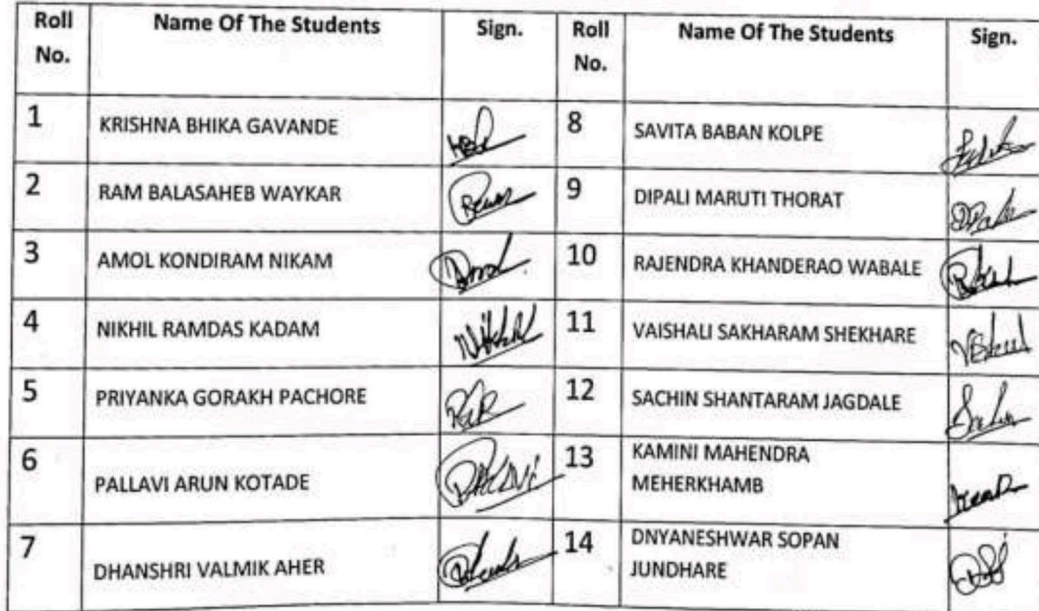 Roll No. Name Of The Students Sign. Roll No. Name Of The Students Sign.
1 KRISHNA BHIKA GAVANDE 8 SAVITA BABAN KOLPE
2 RAM BALASAHEB WAYKAR 9 DIPALI MARUTI THORAT
3 AMOL KONDIRAM NIKAM 10 RAJENDRA KHANDERAO WABALE
4 NIKHIL RAMDAS KADAM Nikhil 11 VAISHALI SAKHARAM SHEKHARE
5 PRIYANKA GORAKH PACHORE 12 SACHIN SHANTARAM JAGDALE
6 PALLAVI ARUN KOTADE 13 KAMINI MAHENDRA
MEHERKHAMB
7 DHANSHRI VALMIK AHER 14 DNYANESHWAR SOPAN
JUNDHARE